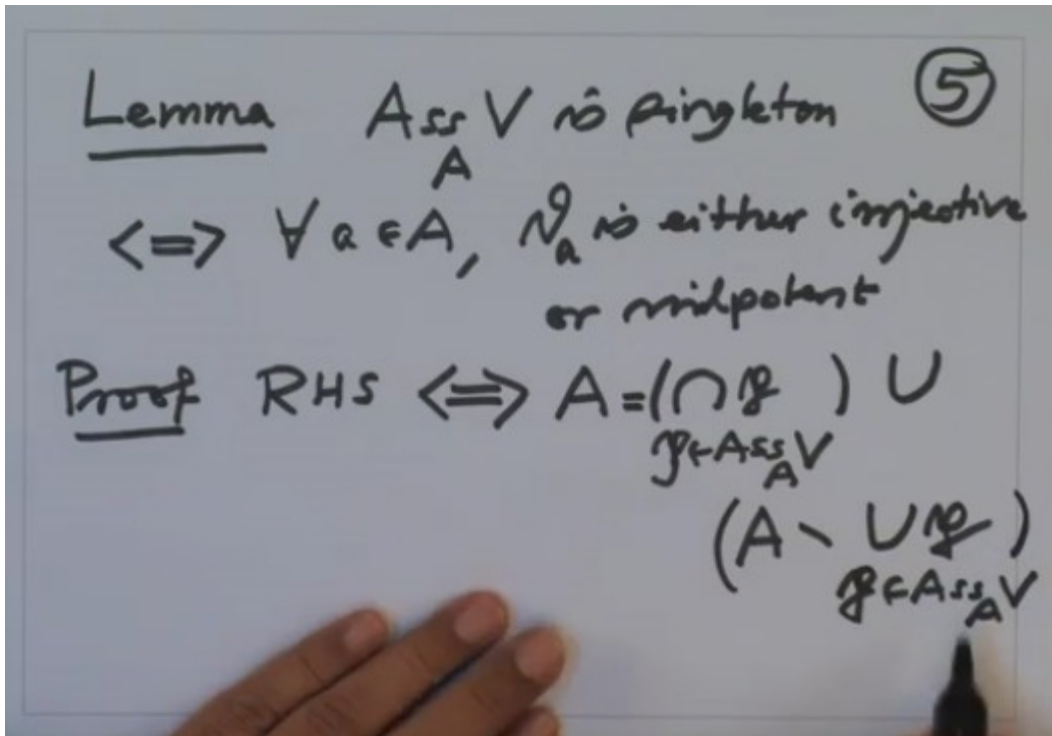 Lemma Ass_A V is singleton ⑤
<=> ∀ a ∈ A, ϑ_a is either injective
or nilpotent
Proof RHS <=> A = (∩ 𝔭) ∪
𝔭 ∈ Ass_A V
(A \ ∪ 𝔭)
𝔭 ∈ Ass_A V